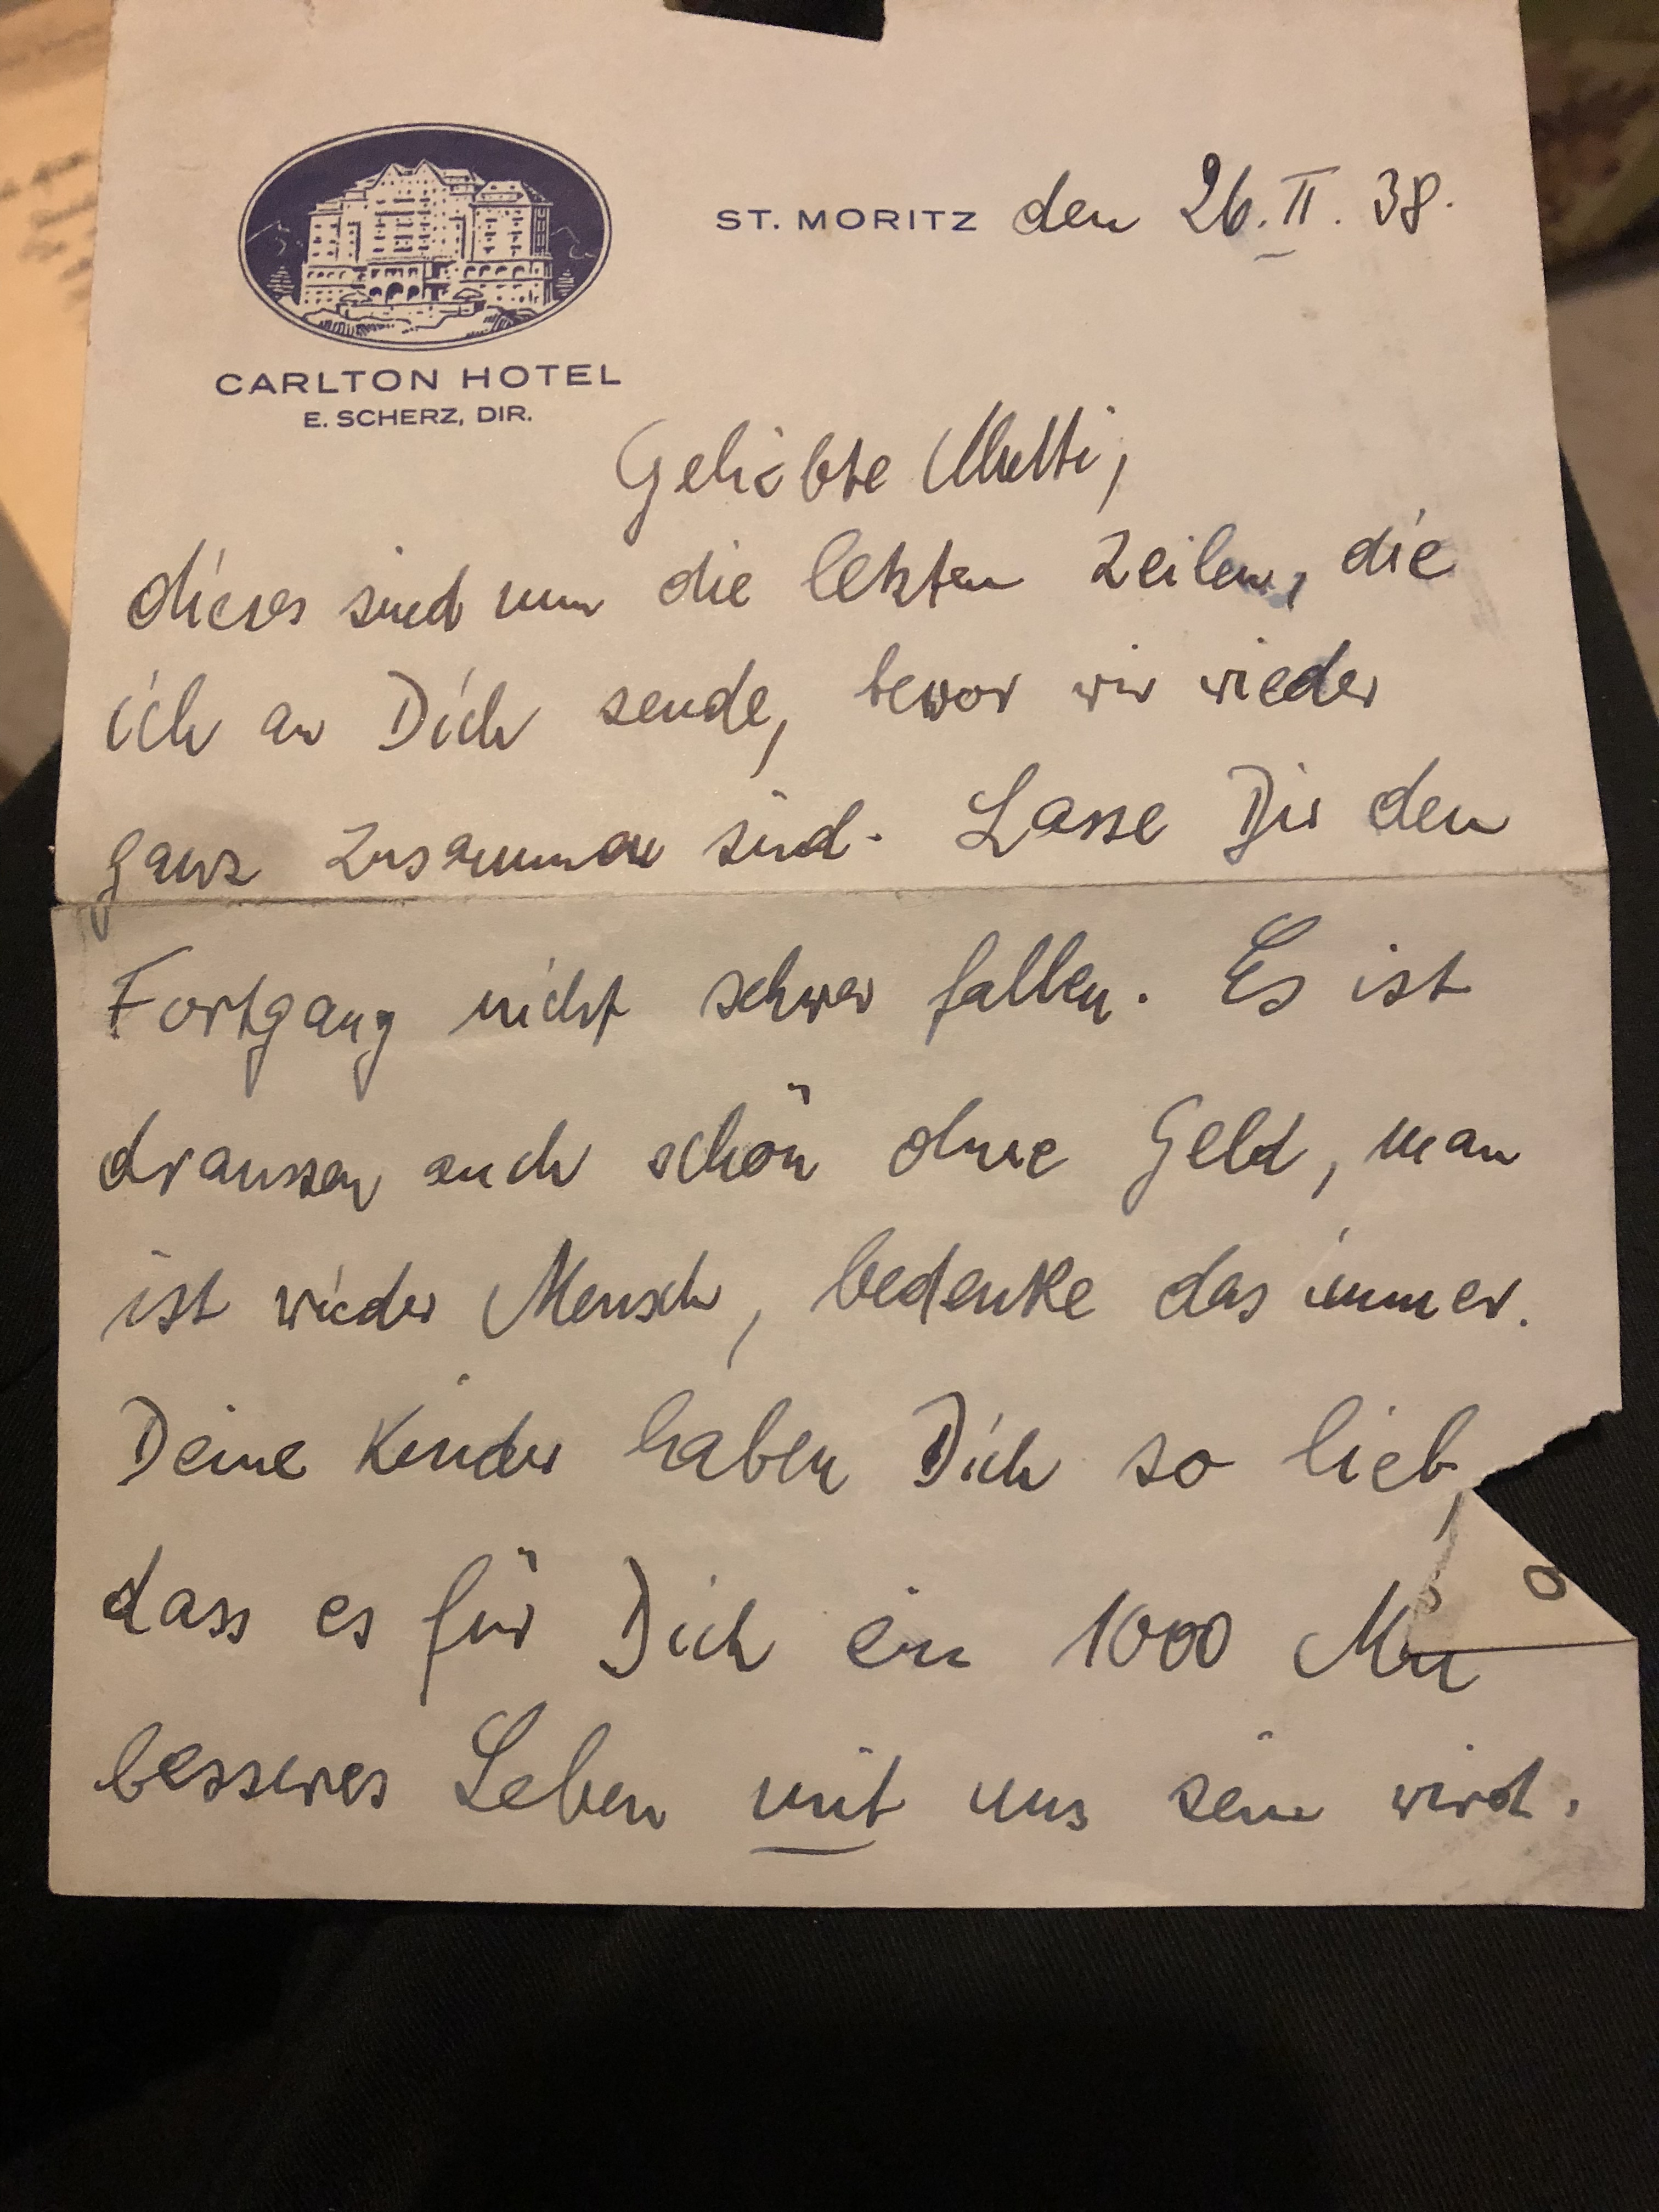 ST. MORITZ den 26. II. 38.
CARLTON HOTEL
E. SCHERZ, DIR.
Geliebte Mutti,
dieses sind nun die letzten Zeilen, die
ich an Dich sende, bevor wir wieder
ganz zusammen sind. Lasse Dir den
Fortgang nicht schwer fallen. Es ist
draussen auch schön ohne Geld, man
ist wieder Mensch, bedenke das immer.
Deine Kinder haben Dich so lieb,
dass es für Dich ein 1000
besseres Leben mit uns sein wird.